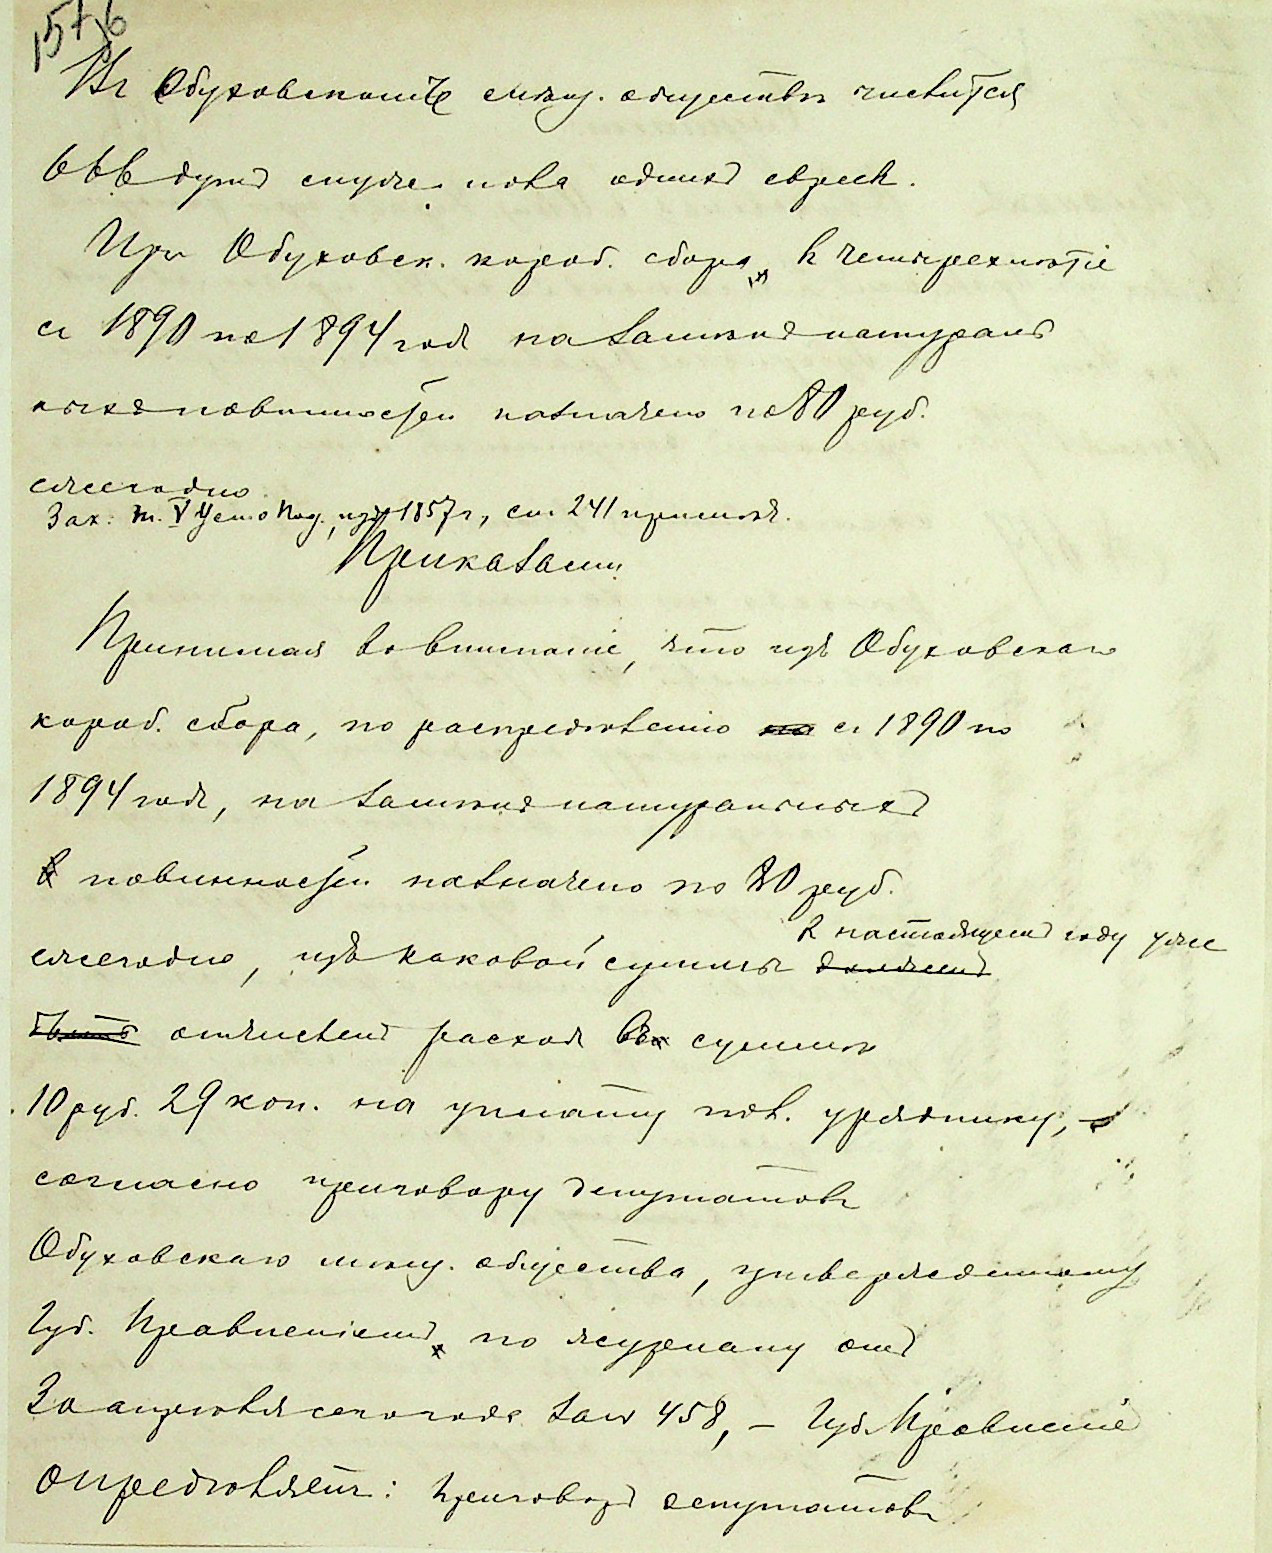 157б
Въ Обуховскомъ мѣщ. обществѣ числится
666 душъ мужс. пола однихъ евреевъ.
Изъ Обуховск. короб. сбора, въ четырехлѣтіе
съ 1890 по 1894 годъ на замѣнъ натураль
ныхъ повинностей назначено по 80 руб.
ежегодно
Зак: т. V Уст. о Под., изд. 1857 г., ст. 241 примѣч.
Приказали
Принимая во вниманіе, что изъ Обуховскаго
короб. сбора, по распредѣленію на съ 1890 по
1894 годъ, на замѣнъ натуральныхъ
в повинностей назначено по 80 руб.
въ настоящемъ году уже
ежегодно, изъ каковой суммы долженъ
быть отчисленъ расходъ въ суммѣ
10 руб. 29 коп. на уплату пол. уряднику, –
согласно приговору депутатовъ
Обуховскаго мѣщ. общества, утвержденному
Губ. Правленіемъ по журналу отъ
30 апрѣля сего года за № 458, – Губ. Правленіе
опредѣляетъ: приговоръ депутатовъ